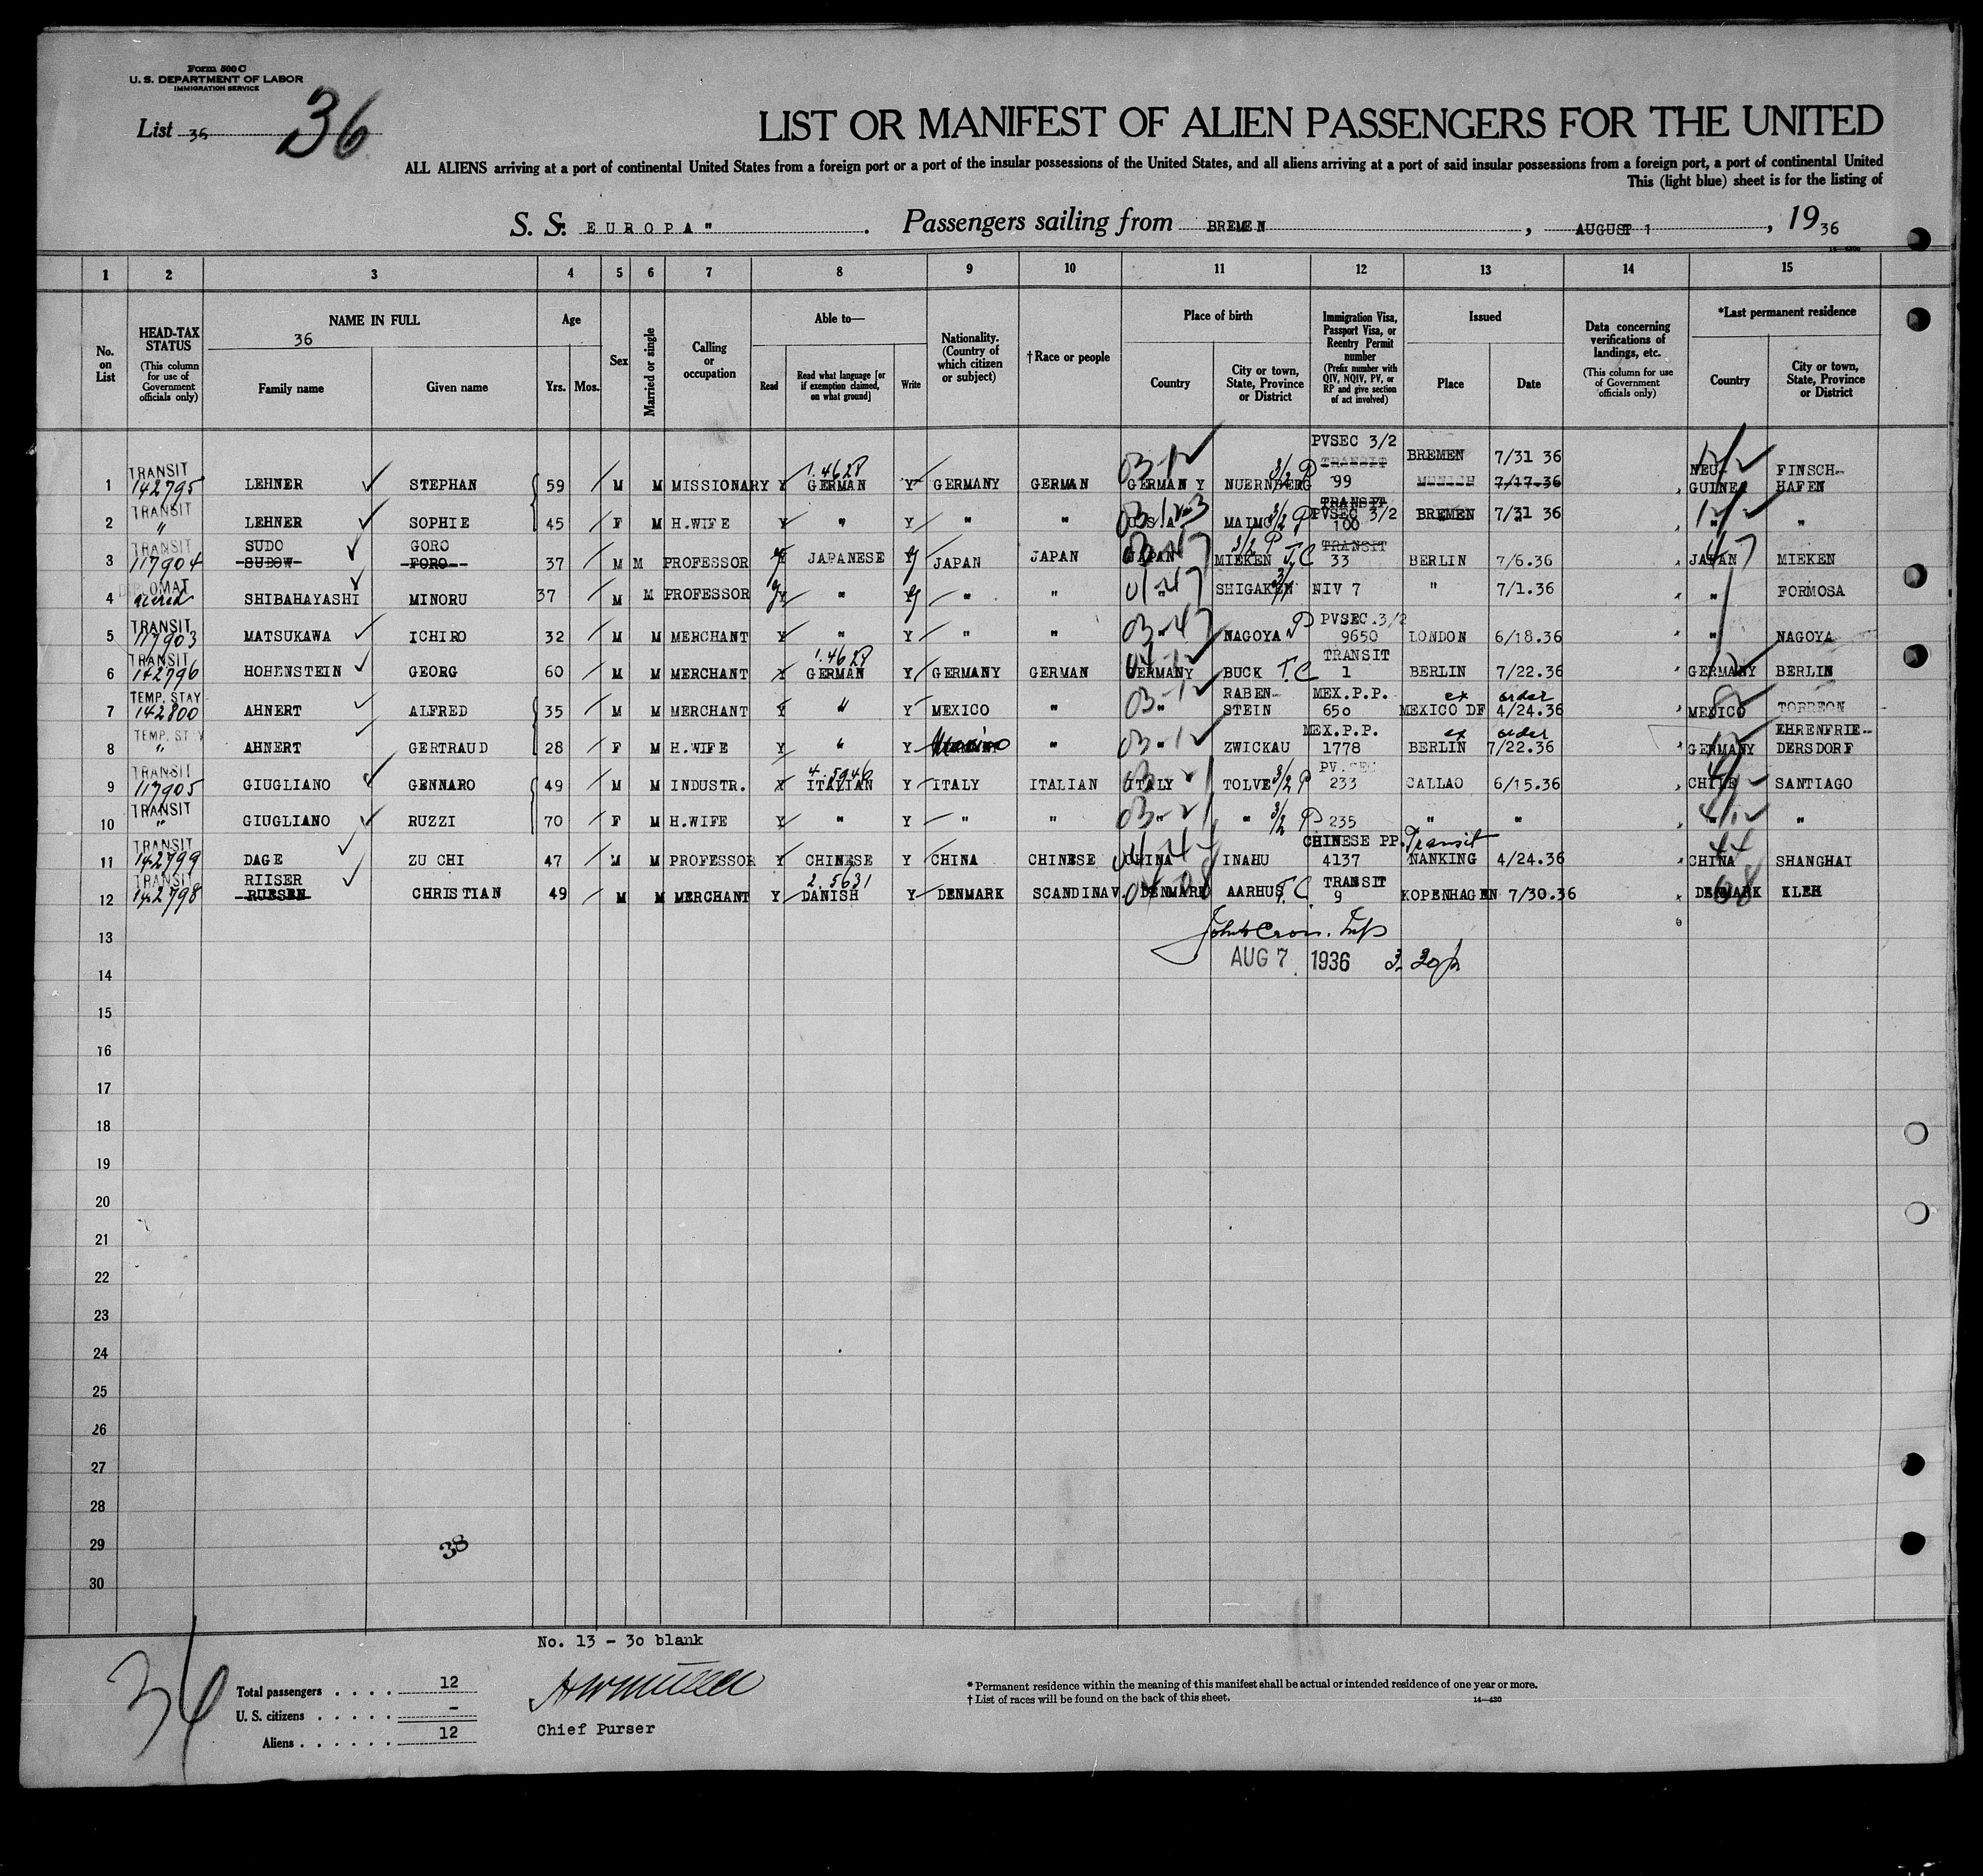 Form 500 C
U. S. DEPARTMENT OF LABOR
IMMIGRATION SERVICE
List 36
36
LIST OR MANIFEST OF ALIEN PASSENGERS FOR THE UNITED
ALL ALIENS arriving at a port of continental United States from a foreign port or a port of the insular possessions of the United States, and all aliens arriving at a port of said insular possessions from a foreign port, a port of continental United
This (light blue) sheet is for the listing of
S. S. "EUROPA" Passengers sailing from BREMEN, AUGUST 1, 1936
1 2 3 4 5 6 7 8 9 10 11 12 13 14 15
No. on List
HEAD-TAX STATUS (This column for use of Government officials only)
NAME IN FULL
36
Family name Given name
Age
Yrs. Mos.
Sex
Married or single
Calling or occupation
Able to—
Read
Read what language [or if exemption claimed, on what ground]
Write
Nationality. (Country of which citizen or subject)
†Race or people
Place of birth
Country
City or town, State, Province or District
Immigration Visa, Passport Visa, or Reentry Permit number (Prefix number with QIV, NQIV, PV, or RP and give section of act involved)
Issued
Place Date
Data concerning verifications of landings, etc. (This column for use of Government officials only)
*Last permanent residence
Country
City or town, State, Province or District
PVSEC 3/2
TRANSIT 1.4628 03-12 3/2 P TRANSIT BREMEN 7/31 36 NEU- FINSCH-
1 142795 LEHNER STEPHAN 59 M M MISSIONARY Y GERMAN Y GERMANY GERMAN GERMANY NUERNBERG 99 MUNICH 7/17.36 GUINEA HAFEN
TRANSIT TRANSIT
2 " LEHNER SOPHIE 45 F M H.WIFE Y " Y " " U.S.A. 3/2 P PVSEC 3/2 100 BREMEN 7/31 36 " "
TRANSIT SUDO GORO 3/2 P TRANSIT
3 117904 SUDOW FORO 37 M M PROFESSOR Y JAPANESE Y JAPAN JAPAN JAPAN MIEKEN T.C 33 BERLIN 7/6.36 JAPAN MIEKEN
DIPLOMAT
4 SHIBAHAYASHI MINORU 37 M M PROFESSOR Y " Y " " 01-47 SHIGAKEN NIV 7 " 7/1.36 " FORMOSA
TRANSIT PVSEC.3/2
5 117903 MATSUKAWA ICHIRO 32 M M MERCHANT Y " Y " " 03-47 NAGOYA P 9650 LONDON 6/18.36 " NAGOYA
TRANSIT 1.4628 TRANSIT
6 142796 HOHENSTEIN GEORG 60 M M MERCHANT Y GERMAN Y GERMANY GERMAN GERMANY BUCK T.C 1 BERLIN 7/22.36 GERMANY BERLIN
TEMP. STAY 03-12 RABEN- MEX.P.P. ex order
7 142800 AHNERT ALFRED 35 M M MERCHANT Y " Y MEXICO " " STEIN 650 MEXICO DF 4/24.36 MEXICO TORREON
TEMP. STAY 03-12 MEX.P.P. ex order EHRENFRIE-
8 " AHNERT GERTRAUD 28 F M H.WIFE Y " Y " ZWICKAU 1778 BERLIN 7/22.36 GERMANY DERSDORF
TRANSIT 4.5946 PV.SEC
9 117905 GIUGLIANO GENNARO 49 M M INDUSTR. Y ITALIAN Y ITALY ITALIAN ITALY TOLVE 3/2 P 233 CALLAO 6/15.36 CHILE SANTIAGO
TRANSIT
10 " GIUGLIANO RUZZI 70 F M H.WIFE Y " Y " " 03-21 " 3/2 P 235 " " " "
TRANSIT CHINESE PP. Transit 44
11 142799 DAGE ZU CHI 47 M M PROFESSOR Y CHINESE Y CHINA CHINESE CHINA INAHU 4137 NANKING 4/24.36 CHINA SHANGHAI
TRANSIT RIISER 2.5631 TRANSIT 08
12 142798 CHRISTIAN 49 M M MERCHANT Y DANISH Y DENMARK SCANDINAV. DENMARK AARHUS T.C. 9 KOPENHAGEN 7/30.36 DENMARK
13
AUG 7 1936
14
15
16
17
18
19
20
21
22
23
24
25
26
27
28
29 38
30
No. 13 - 30 blank
Total passengers . . . . 12
U. S. citizens . . . . . -
Aliens . . . . . . 12
Chief Purser
* Permanent residence within the meaning of this manifest shall be actual or intended residence of one year or more.
† List of races will be found on the back of this sheet.
14—430